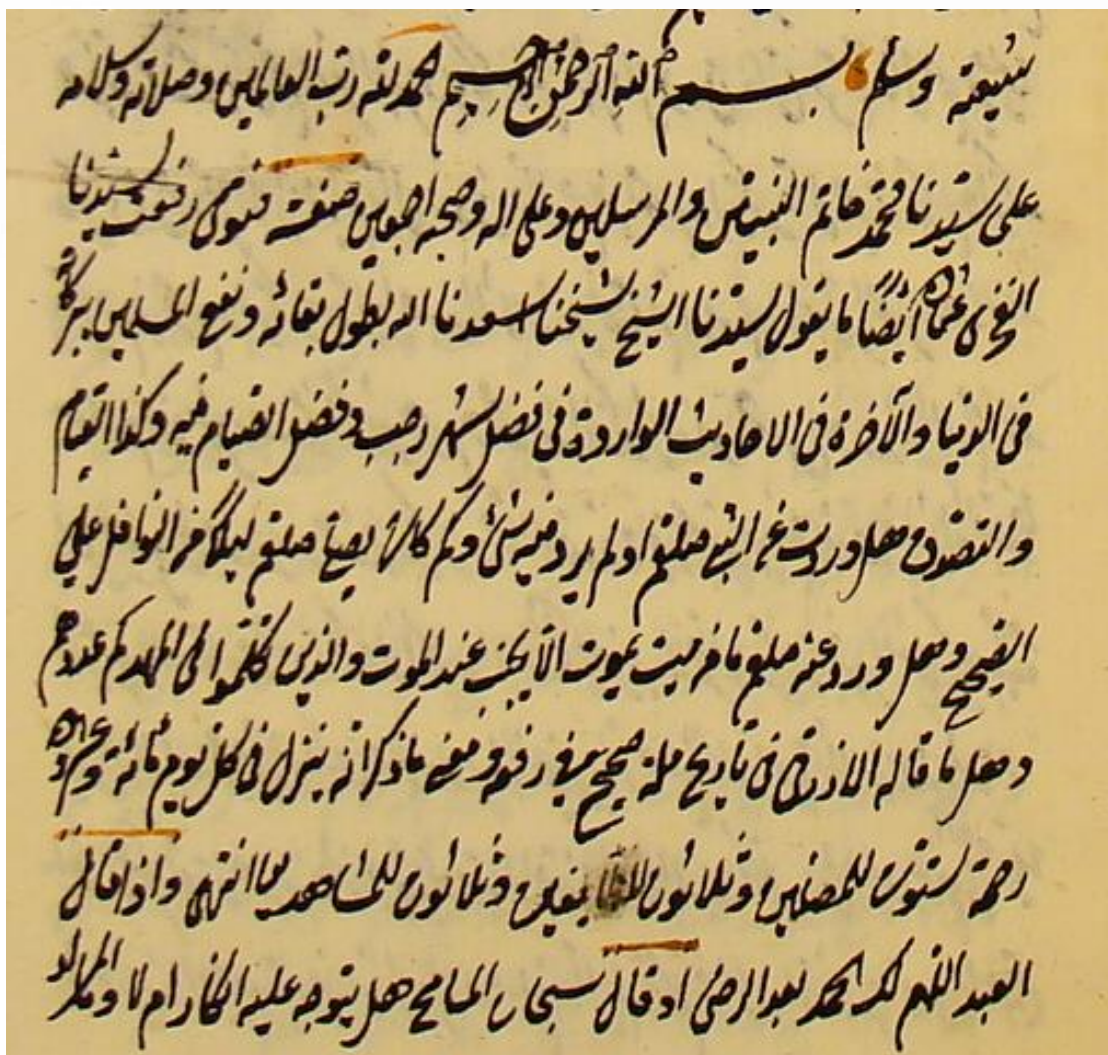 شيعته وسلم بسم الله الرحمن الرحيم الحمد لله رب العالمين وصلاته وسلامه
على سيدنا محمد خاتم النبيين والمرسلين وعلى اله وصحبه اجمعين صفة فتوى رفعت لسيدنا
الفخرى عثمان ايضًا ما يقول سيدنا الشيخ شيخنا اسعدنا الله بطول بقائه ونفع المسلمين ببركاته
فى الدنيا والآخرة فى الاحاديث الواردة فى فضل شهر رجب وفضل الصيام فيه وكذا القيام
والتصدق هل وردت عن النبى صلعم او لم يرد فيه شئ وكم كان يصلى صلعم ليلا من النوافل على
الصحيح وهل ورد عنه صلعم ما من ميت يموت الا يجنب عند الموت والذين تكلموا فى المهد كم عددهم
وهل ما قاله الازرقى فى تاريخ مكة صحيح فى رفعه ما ذكر انه ينزل فى كل يوم مائة وعشرون
رحمة ستون للمصلين وثلاثون للطايفين وثلاثون للمشاهدين انتهى واذا قال
العبد اللهم لك الحمد بعد الرضى او قال سبحان المسامح هل يتوجه عليه انكار ام لا وما المراد